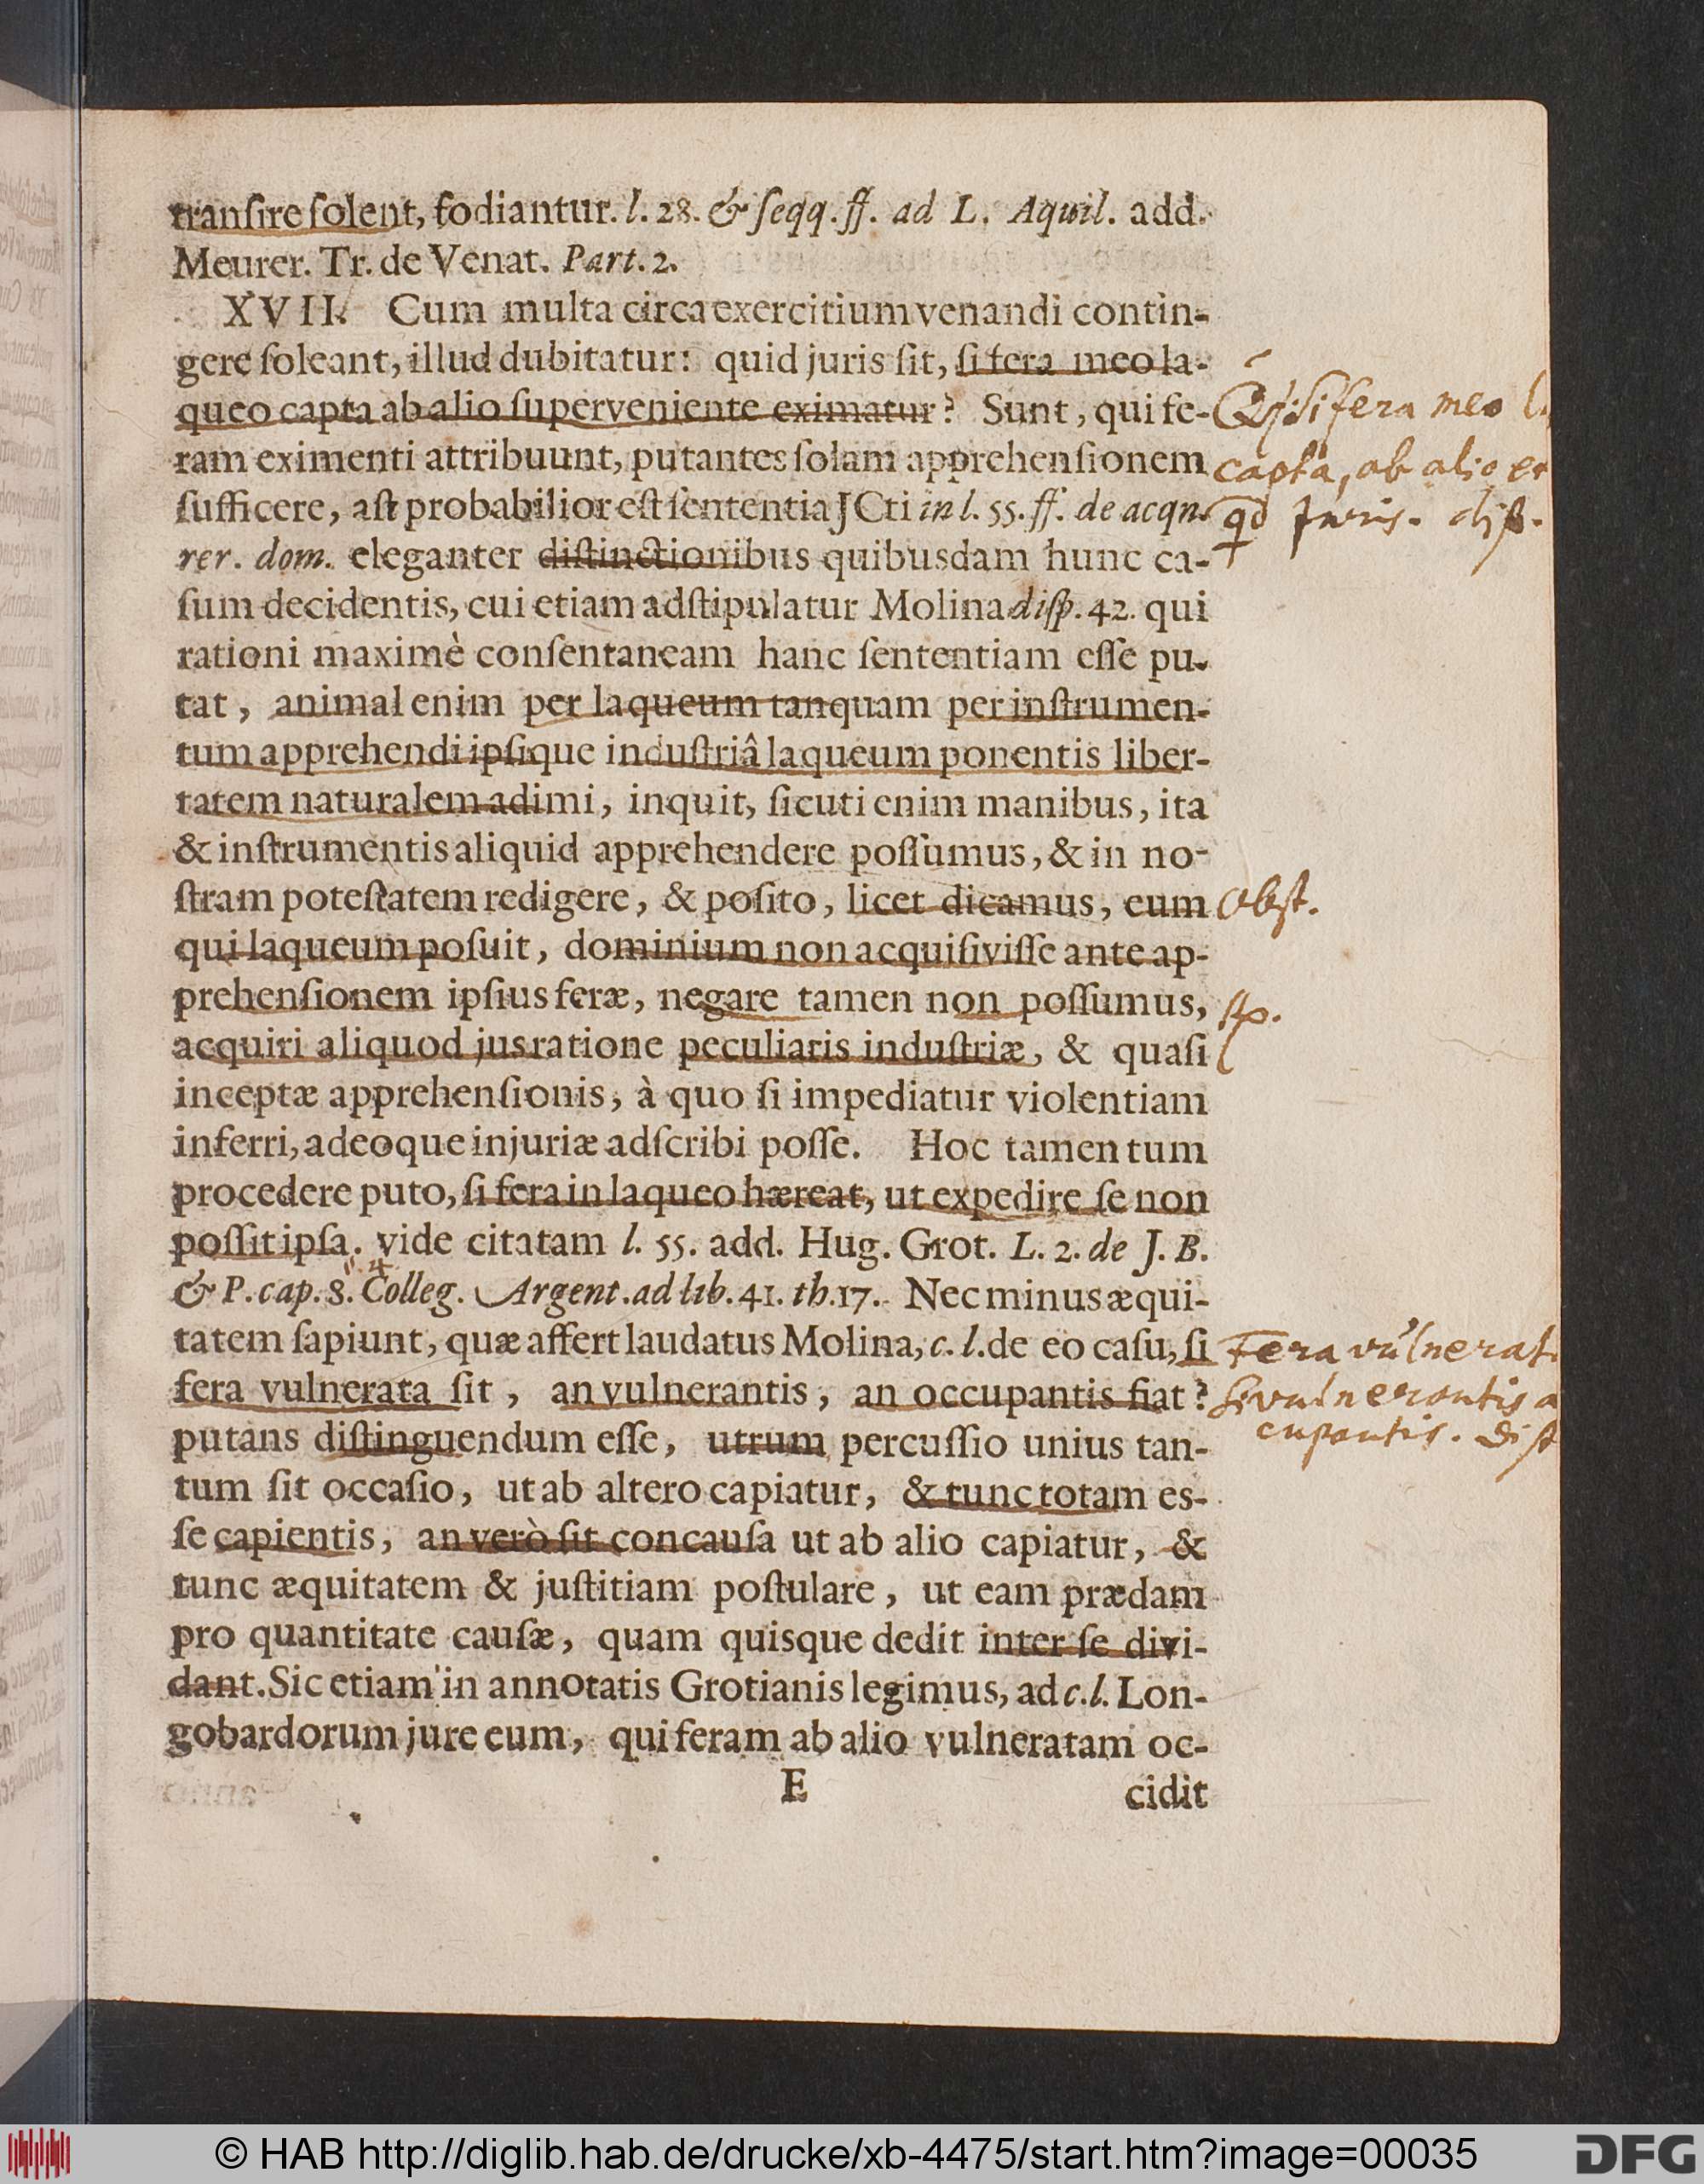 tranſire ſolent, fodiantur. l. 28. & ſeqq. ff. ad L. Aquil. add.
Meurer. Tr. de Venat. Part. 2.
XVII. Cum multa circa exercitium venandi contin-
gere ſoleant, illud dubitatur: quid juris ſit, ſi fera meo la-
queo capta ab alio ſuperveniente eximatur? Sunt, qui fe-
ram eximenti attribuunt, putantes ſolam apprehenſionem
ſufficere, aſt probabilior eſt ſententia JCti in l. 55. ff. de acqu.
rer. dom. eleganter diſtinctionibus quibusdam hunc ca-
ſum decidentis, cui etiam adſtipulatur Molina diſp. 42. qui
rationi maximè conſentaneam hanc ſententiam eſſe pu-
tat, animal enim per laqueum tanquam per inſtrumen-
tum apprehendi ipſique induſtriâ laqueum ponentis liber-
tatem naturalem adimi, inquit, ſicuti enim manibus, ita
& inſtrumentis aliquid apprehendere poſſumus, & in no-
ſtram poteſtatem redigere, & poſito, licet dicamus, eum
qui laqueum poſuit, dominium non acquiſiviſſe ante ap-
prehenſionem ipſius feræ, negare tamen non poſſumus,
acquiri aliquod jus ratione peculiaris induſtriæ, & quaſi
inceptæ apprehenſionis, à quo ſi impediatur violentiam
inferri, adeoque injuriæ adſcribi poſſe. Hoc tamen tum
procedere puto, ſi fera in laqueo hæreat, ut expedire ſe non
poſſit ipſa. vide citatam l. 55. add. Hug. Grot. L. 2. de J. B.
& P. cap. 8. Colleg. Argent. ad lib. 41. th. 17. Nec minus æqui-
tatem ſapiunt, quæ affert laudatus Molina, c. l. de eo caſu, ſi
fera vulnerata ſit, an vulnerantis, an occupantis fiat?
putans diſtinguendum eſſe, utrum percuſſio unius tan-
tum ſit occaſio, ut ab altero capiatur, & tunc totam es-
ſe capientis, an verò ſit concauſa ut ab alio capiatur, &
tunc æquitatem & juſtitiam poſtulare, ut eam prædam
pro quantitate cauſæ, quam quisque dedit inter ſe divi-
dant. Sic etiam in annotatis Grotianis legimus, ad c. l. Lon-
gobardorum jure eum, qui feram ab alio vulneratam oc-
E cidit
si fera meo
capta, ab alio
qd Juris. diſt.
obſt.
Fera vulnerat
vulnerantis
cupantis. Diſt
© HAB http://diglib.hab.de/drucke/xb-4475/start.htm?image=00035
DFG